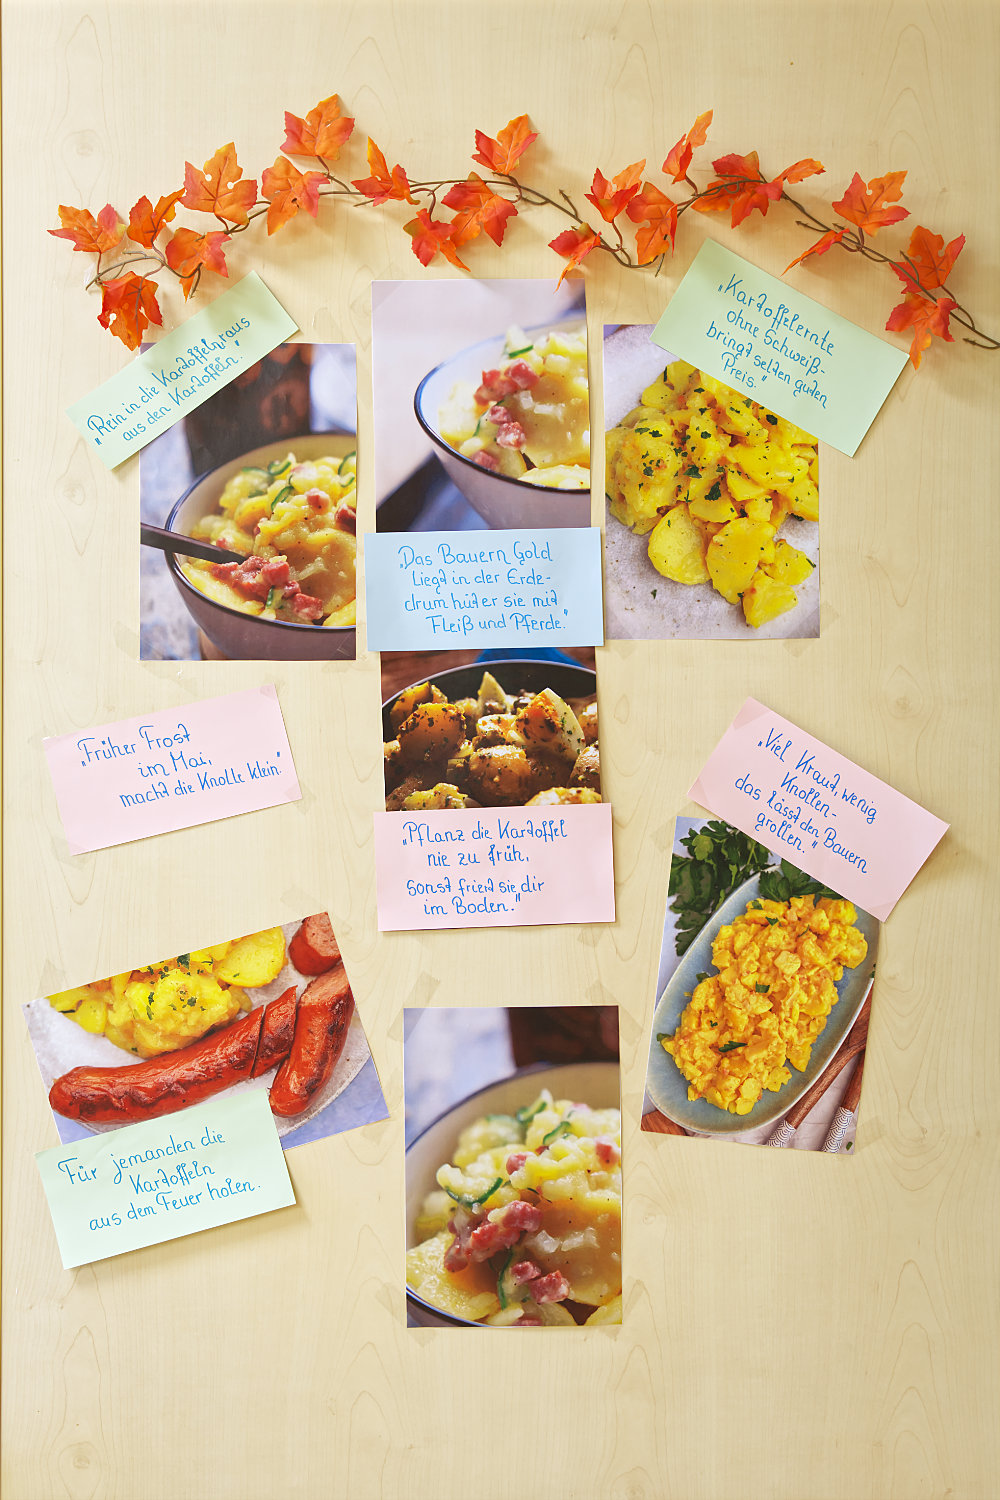 „Rein in die Kartoffeln, raus
aus den Kartoffeln."
„Kartoffelernte
ohne Schweiß-
bringt selten guten
Preis."
„Das Bauern Gold
liegt in der Erde-
drum hüt er sie mit
Fleiß und Pferde."
„Früher Frost
im Mai,
macht die Knolle klein."
„Viel Kraut, wenig
Knollen-
das lässt den Bauern
grollen."
„Pflanz die Kartoffel
nie zu früh,
sonst friert sie dir
im Boden."
Für jemanden die
Kartoffeln
aus dem Feuer holen.